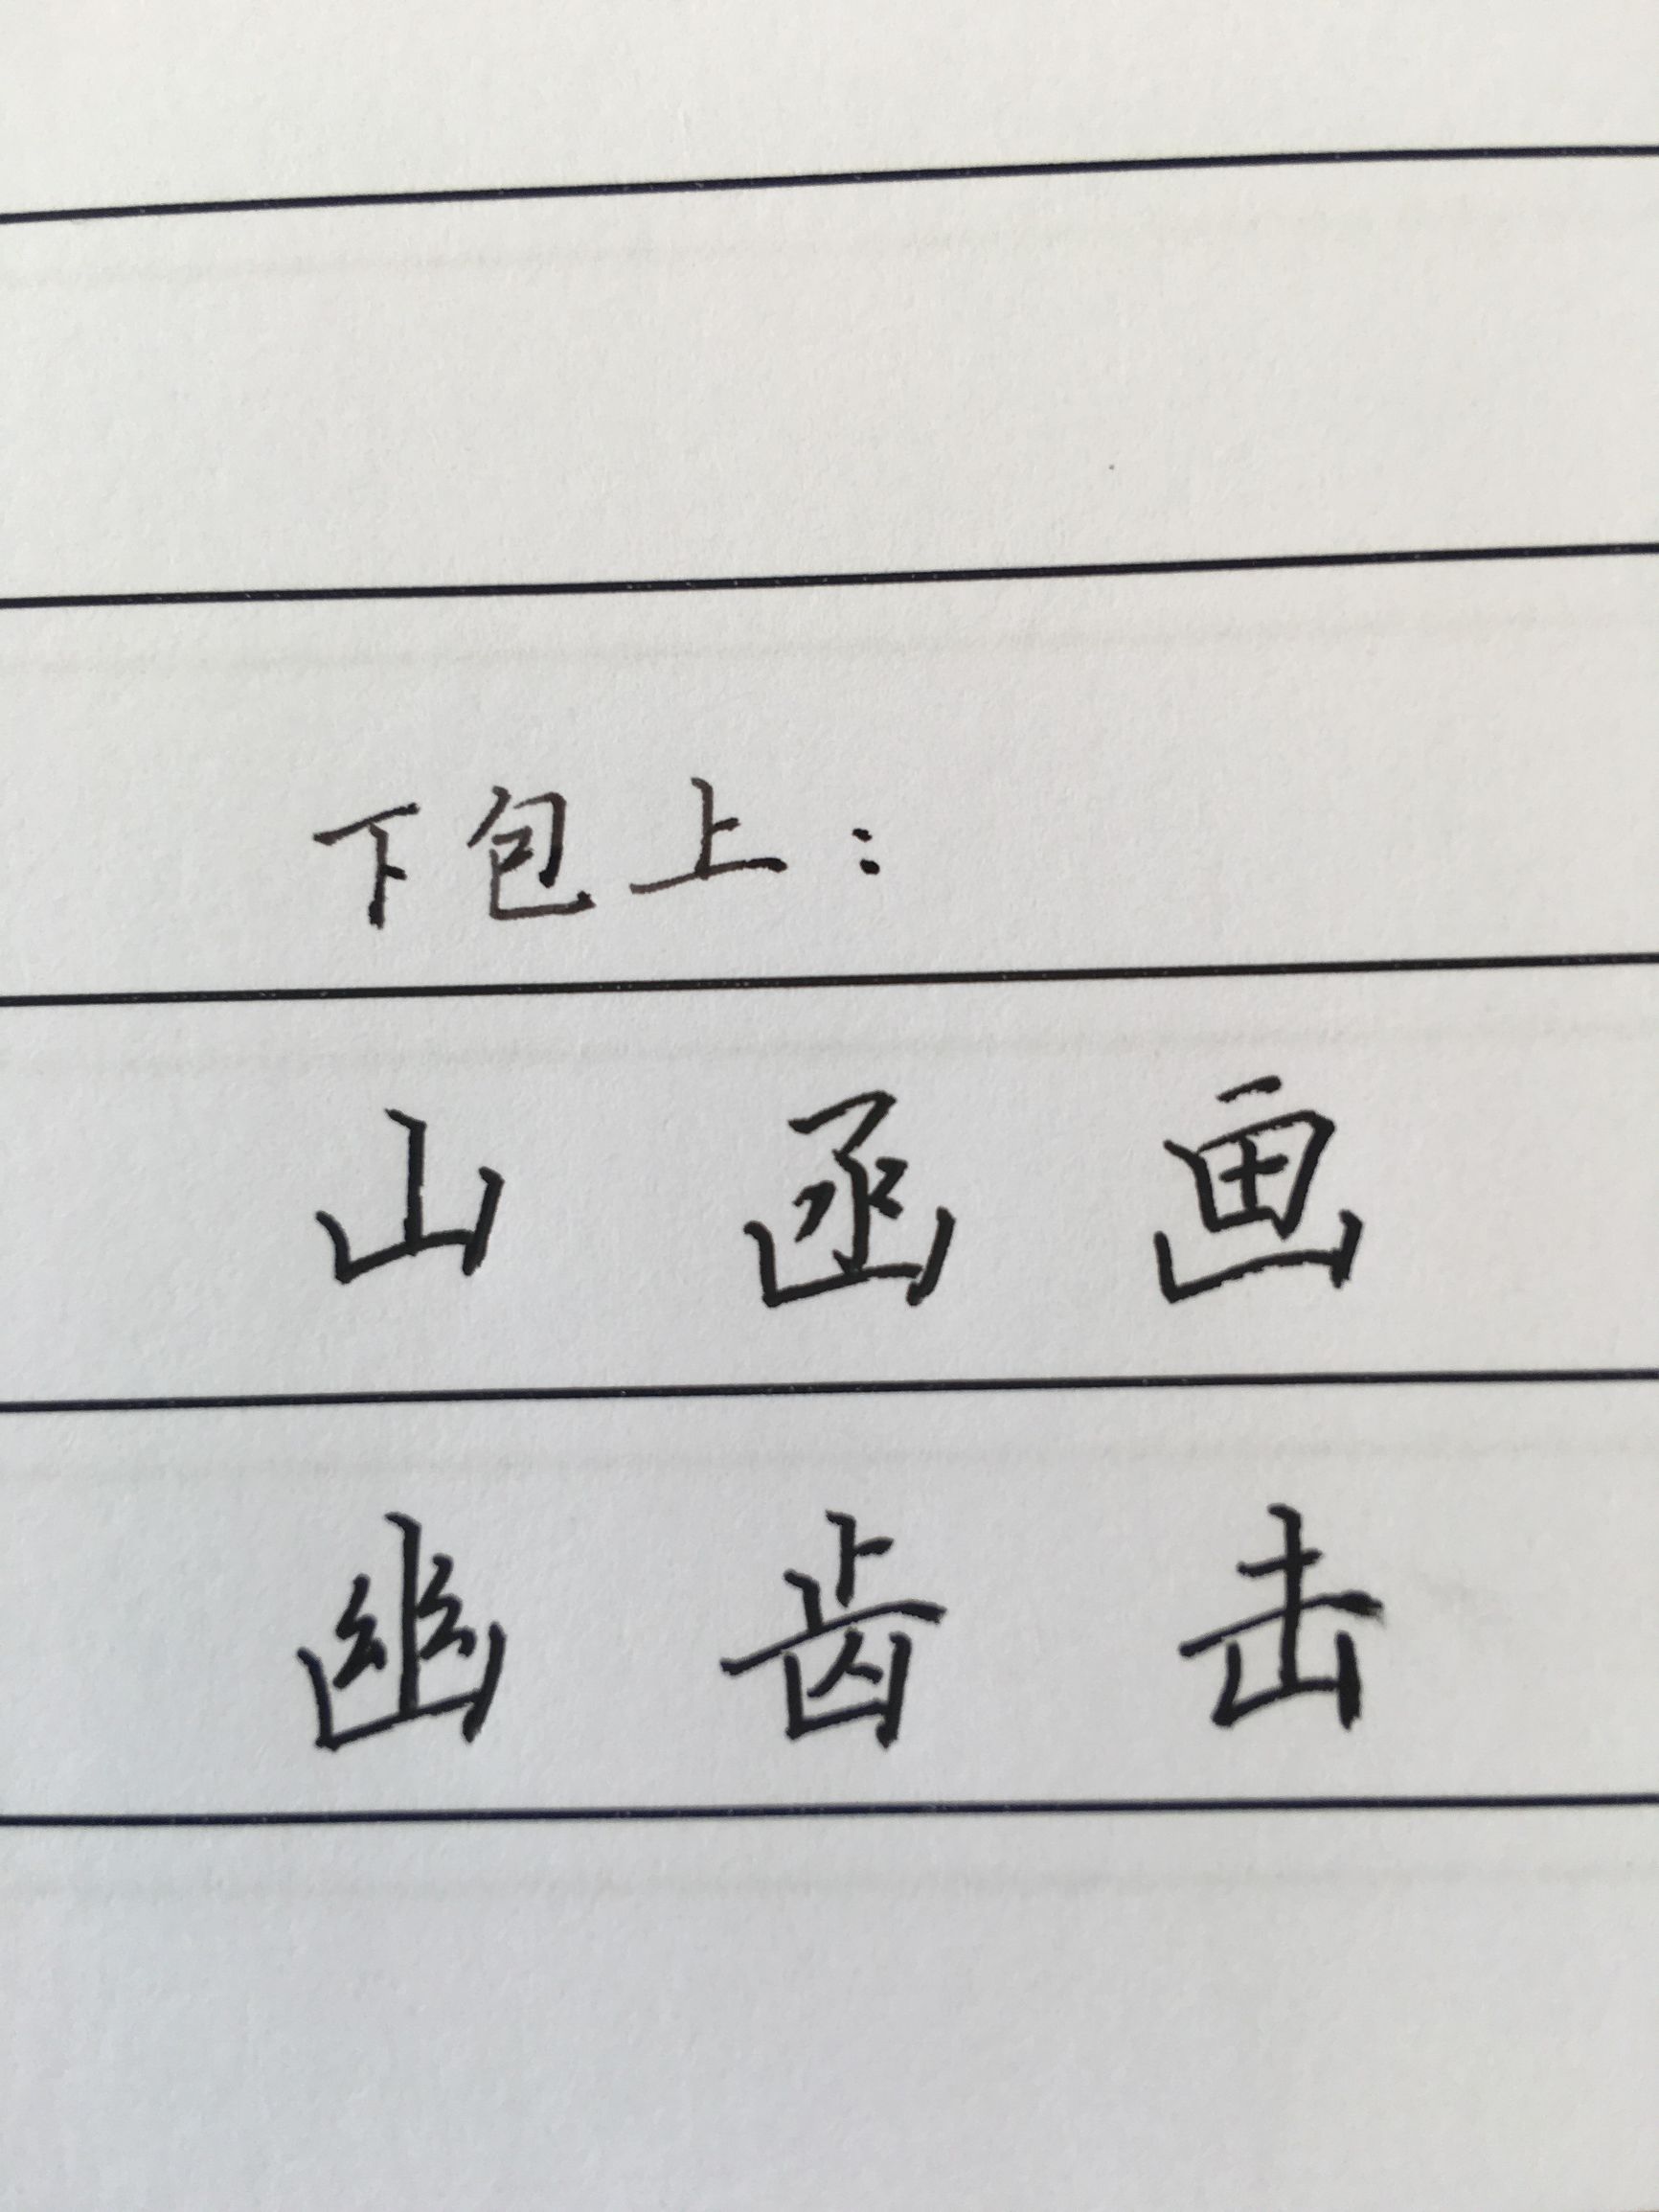 下包上：
山 函 画
幽 齿 击